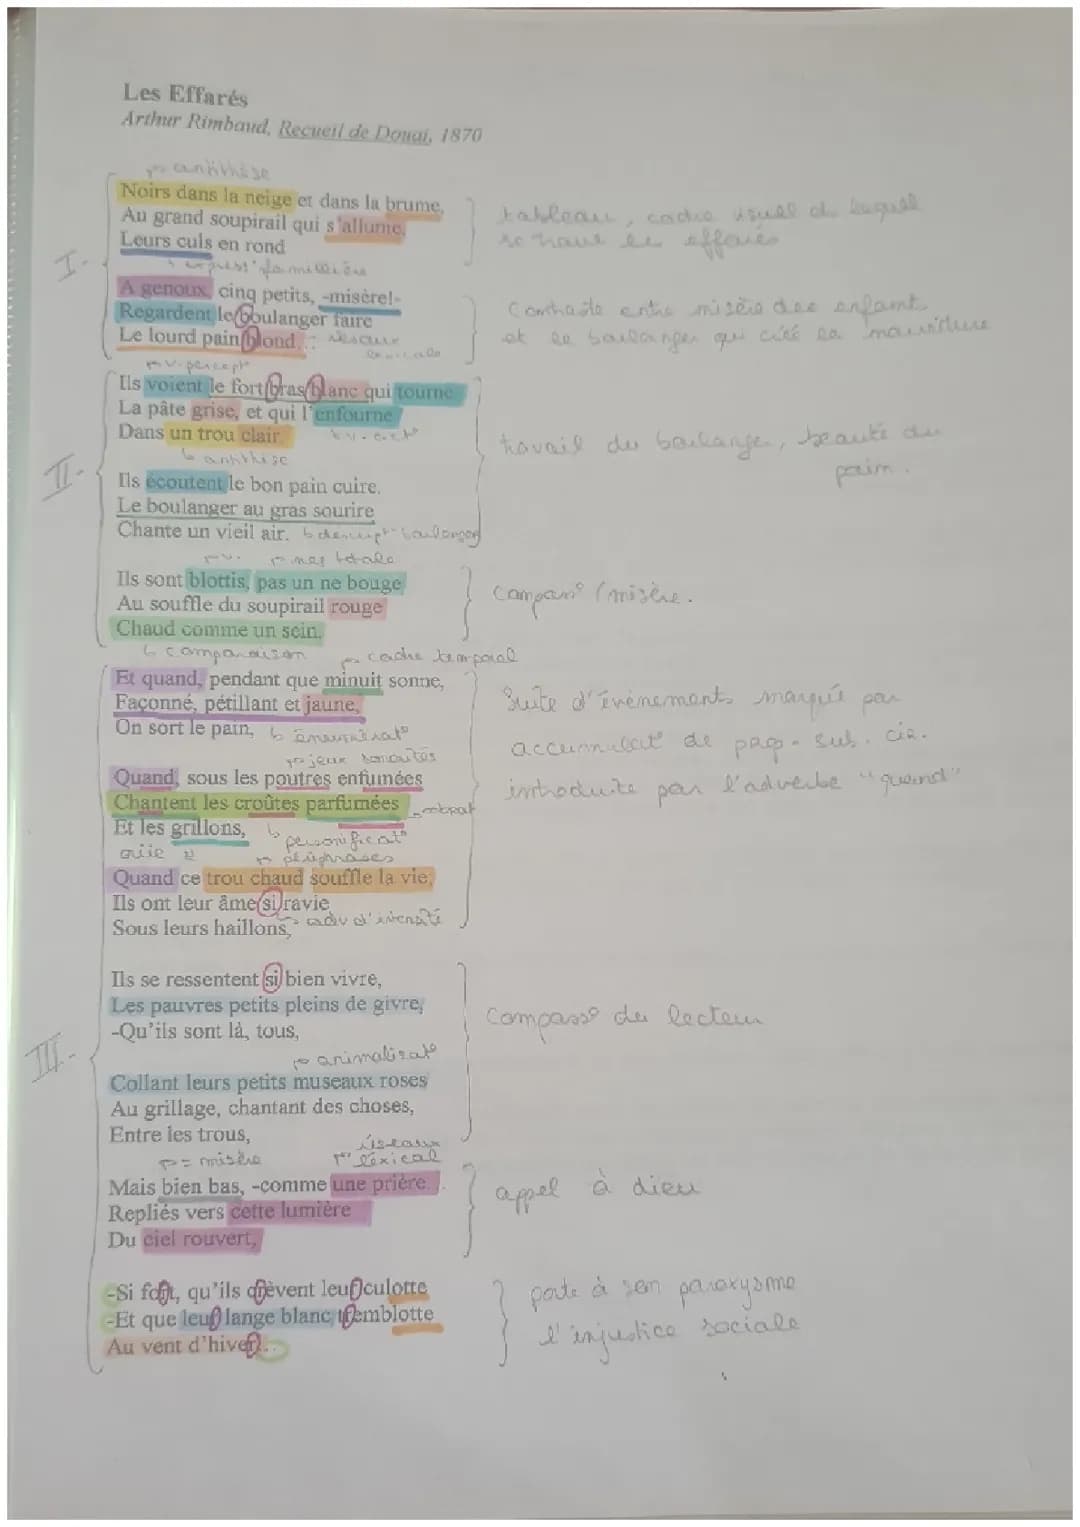 Les Effarés
Arthur Rimbaud, Recueil de Douai, 1870
↳ antithèse
Noirs dans la neige et dans la brume,
Au grand soupirail qui s'allume,
Leurs culs en rond
tableau, cadre visuel ds lequel
se trouve les effarés
I.
↳ express° familière
A genoux, cinq petits, -misère!-
Regardent le boulanger faire
Le lourd pain blond...
réseau
lexicale
Contraste entre misère des enfants
et le boulanger qui créé la nourriture
v. percept°
Ils voient le fort bras blanc qui tourne
La pâte grise, et qui l'enfourne
Dans un trou clair.
v. act°
↳ antithèse
travail du boulanger, beauté du
pain.
II.
Ils écoutent le bon pain cuire.
Le boulanger au gras sourire
Chante un vieil air. ↳ descript° boulanger
v. neg totale
Ils sont blottis, pas un ne bouge
Au souffle du soupirail rouge
Chaud comme un sein.
compar° / misère.
↳ comparaison
cadre temporal
Et quand, pendant que minuit sonne,
Façonné, pétillant et jaune,
On sort le pain, ↳ énumérat°
jeux sonorités
Suite d'événements marqué par
accumulat° de prop. sub. cir.
introduite par l'adverbe "quand"
Quand, sous les poutres enfumées
Chantent les croûtes parfumées
Et les grillons,
↳ personnificat°
périphrases
Quand ce trou chaud souffle la vie;
Ils ont leur âme si ravie
Sous leurs haillons,
adv d'intensité
Ils se ressentent si bien vivre,
Les pauvres petits pleins de givre,
-Qu'ils sont là, tous,
compass° du lecteur
III.-
animalisat°
Collant leurs petits museaux roses
Au grillage, chantant des choses,
Entre les trous,
= misère
réseaux
lexical
Mais bien bas, -comme une prière...
Repliés vers cette lumière
Du ciel rouvert,
appel à dieu
-Si fort, qu'ils crèvent leur culotte
-Et que leur lange blanc tremblotte
Au vent d'hiver...
porte à son paroxysme
l'injustice sociale